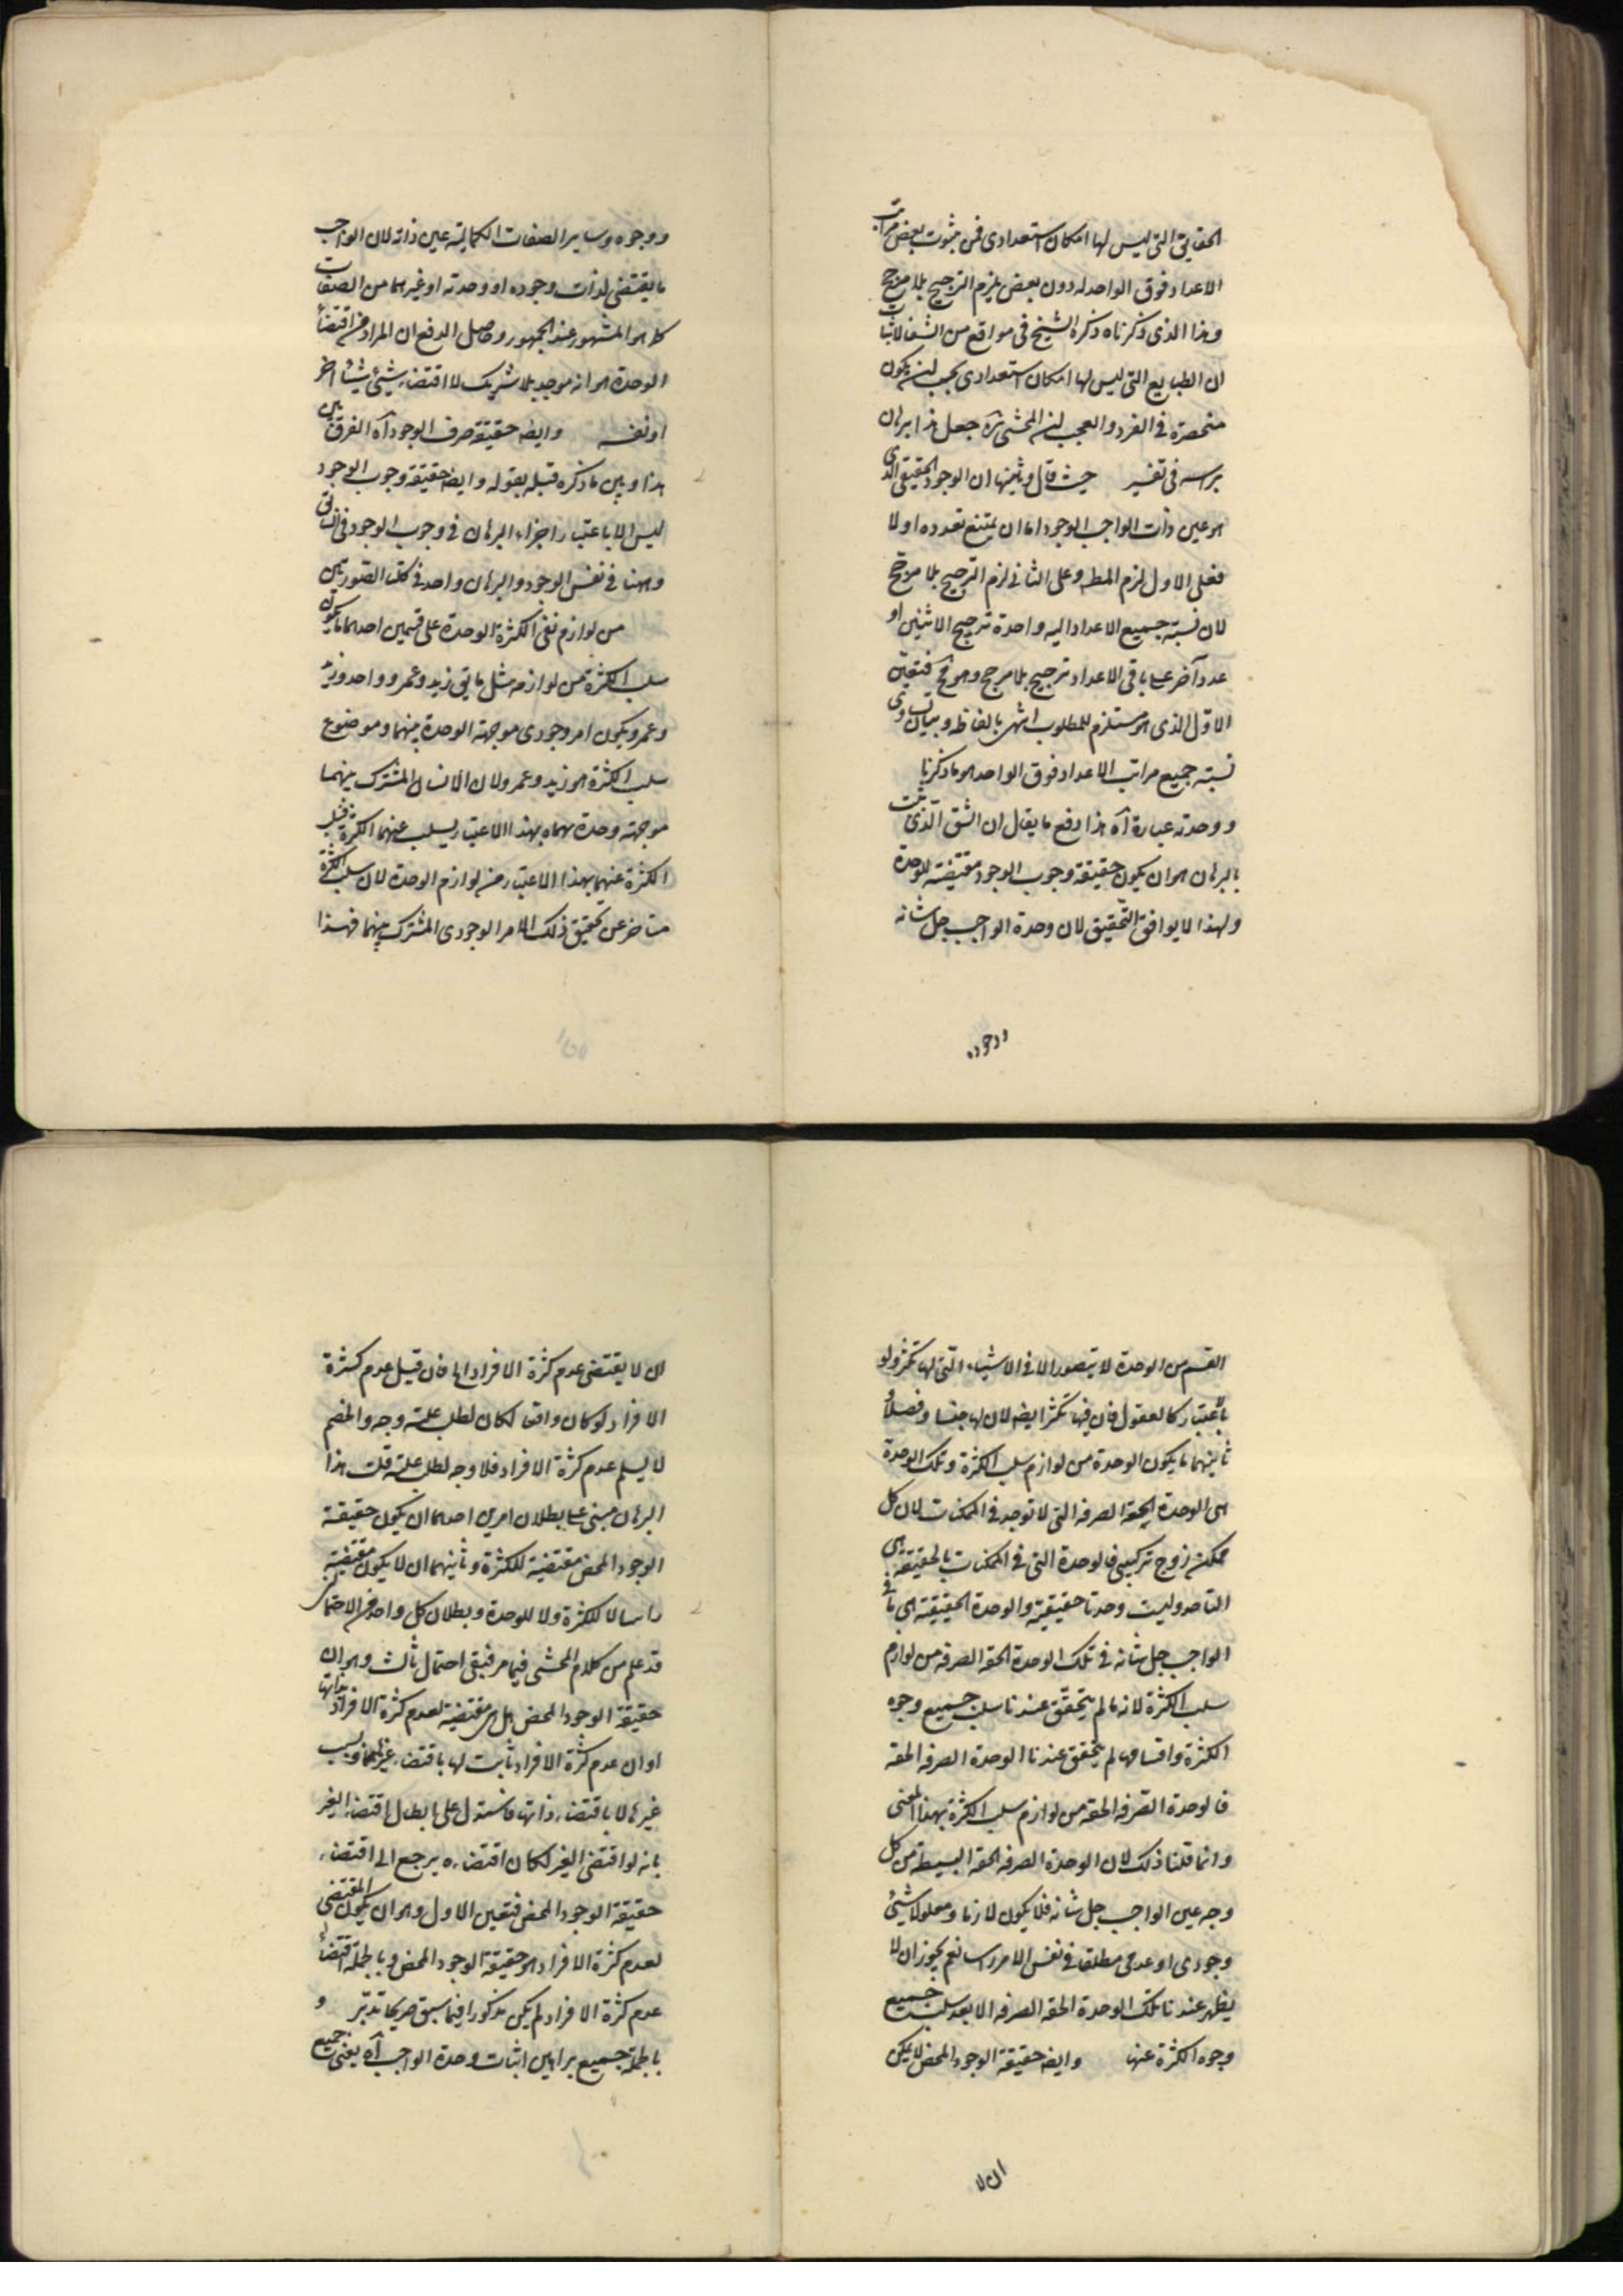 الحقايق التى ليس لها امكان استعدادى فى ثبوت بعض مراتب
الاعداد فوق الواحد له دون بعض يلزم الترجيح بلا مرجح
وهذا الذى ذكرناه ذكره الشيخ فى مواقع من الشفا لاثبات
ان الطبايع التى ليس لها امكان استعدادى يجب ان يكون
منحصرة فى الفرد والعجب ان المحشى ره جعل هذا برهان
براسه فى تفسير حيث قال وثمنها ان الوجود الحقيقى الذى
هو عين ذات الواجب الوجود اما ان يمتنع تعدده اولا
فعلى الاول لزم المط وعلى الثانى لزم الترجيح بلا مرجح
لان نسبته جميع الاعداد اليه واحدة ترجيح الاثنين او
عدد آخر على باقى الاعداد ترجيح بلا مرجح وهو مح فتعين
الاول الذى هو مستلزم للمطلوب انتهى بالفاظه وبيان تساوى
نسبته جميع مراتب الاعداد فوق الواحد هو ما ذكرنا
ووحدته عبارة آه هذا دفع ما يقال ان الشق الذى ثبت
بالبرهان هو ان يكون حقيقة وجوب الوجود مقتضية للوحدة
ولهذا لا يوافق التحقيق لان وحدة الواجب جل شانه
ووجوده
ووجوده وساير الصفات الكمالية عين ذاته لان الواجب
ما يقتضى لذات وجوده او وحدته او غيرهما من الصفات
كما هو المشهور عند الجمهور وحاصل الدفع ان المراد من اقتضاء
الوحدة هو انه موجد بلا شريك لا اقتضاء شيئ شيئا آخر
او نفسه وايضا حقيقة صرف الوجود آه الفرق بين
هذا وبين ما ذكره قبله بقوله وايضا حقيقة وجوب الوجود
ليس الا باعتبار اجزاء البرهان فى وجوب الوجود فى السابق
وههنا فى نفس الوجود والبرهان واحد فى كلت الصورتين
من لوازم نفى الكثرة الوحدة على قسمين احدهما ما يكون
سلب الكثرة من لوازمه مثل ما يق زيد وعمرو واحد وزيد
وعمرو يكون امر وجودى موجهة الوحدة بينهما وموضوع
سلب الكثرة هو زيد وعمرو لان الانسان المشترك بينهما
موجهة وحدة سماه بهذا الاعتبار يسلب عنهما الكثرة فسلب
الكثرة عنهما بهذا الاعتبار من لوازم الوحدة لان سلب الكثرة
متاخر عن تحقيق ذلك الامر الوجودى المشترك بينهما فهذا
القسم من الوحدة لا يتصور الا فى الاشياء التى لها تكثر ولو
باعتبار كالعقول فان فيها تكثر ايضا لان لها جنسا وفصلا و
ثانيهما ما يكون الوحدة من لوازم سلب الكثرة وتلك الوحدة
هى الوحدة الحقه الصرفه التى لا توجد فى الممكنات لان كل
ممكن زوج تركيبى فالوحدة التى فى الممكنات بالحقيقة هى
التاحد وليست وحدتا حقيقية والوحدة الحقيقية هى ما فى
الواجب جل شانه فى تلك الوحدة الحقه الصرفه من لوازم
سلب الكثرة لانه ما لم يتحقق عندنا سلب جميع وجوه
الكثرة واقسامها لم يتحقق عندنا الوحدة الصرفه الحقه
فالوحدة الصرفه الحقه من لوازم سلب الكثرة بهذا المعنى
وانما قلنا ذلك لان الوحدة الصرفه الحقه البسيطة من كل
وجه عين الواجب جل شانه فلا يكون لازما ومعلولا لشيئ
وجودى او عدمى مطلقا فى نفس الامر اساسا نعم يجوز ان لا
يظهر عندنا تلك الوحدة الحقه الصرفه الا بعد سلب جميع
وجوه الكثرة عنها وايضا حقيقة الوجود المحض لا يمكن
ان لا
ان لا يقتضى عدم كثرة الافراد اه فان قيل عدم كثرة
الافراد لو كان واقعا لكان لطلب علته وجه والخصم
لا يسلم عدم كثرة الافراد فلا وجه لطلب علته قلت هذا
البرهان مبنى على بطلان امرين احدهما ان يكون حقيقة
الوجود المحض مقتضية للكثرة وثانيهما ان لا يكون مقتضية
راسا لا للكثرة ولا للوحدة وبطلان كل واحد من الاحتمالين
قد علم من كلام المحشى فيما مر فبقى احتمال ثالث وهو ان
حقيقة الوجود المحض هل هى مقتضية لعدم كثرة الافراد بذاتها
او ان عدم كثرة الافراد ثابت لها باقتضاء غيرها وبسبب
غيرها لا باقتضاء ذاتها فاستدل على ابطال اقتضاء الغير
بانه لو اقتضى الغير لكان اقتضاءه يرجع الى اقتضاء
حقيقة الوجود المحض فتعين الاول وهو ان يكون المقتضى
لعدم كثرة الافراد هو حقيقة الوجود المحض وبالجملة اقتضاء
عدم كثرة الافراد لم يكن مذكورا فيما سبق صريحا تدبر و
بالجملة جميع براهين اثبات وحدة الواجب آه يعنى جميع